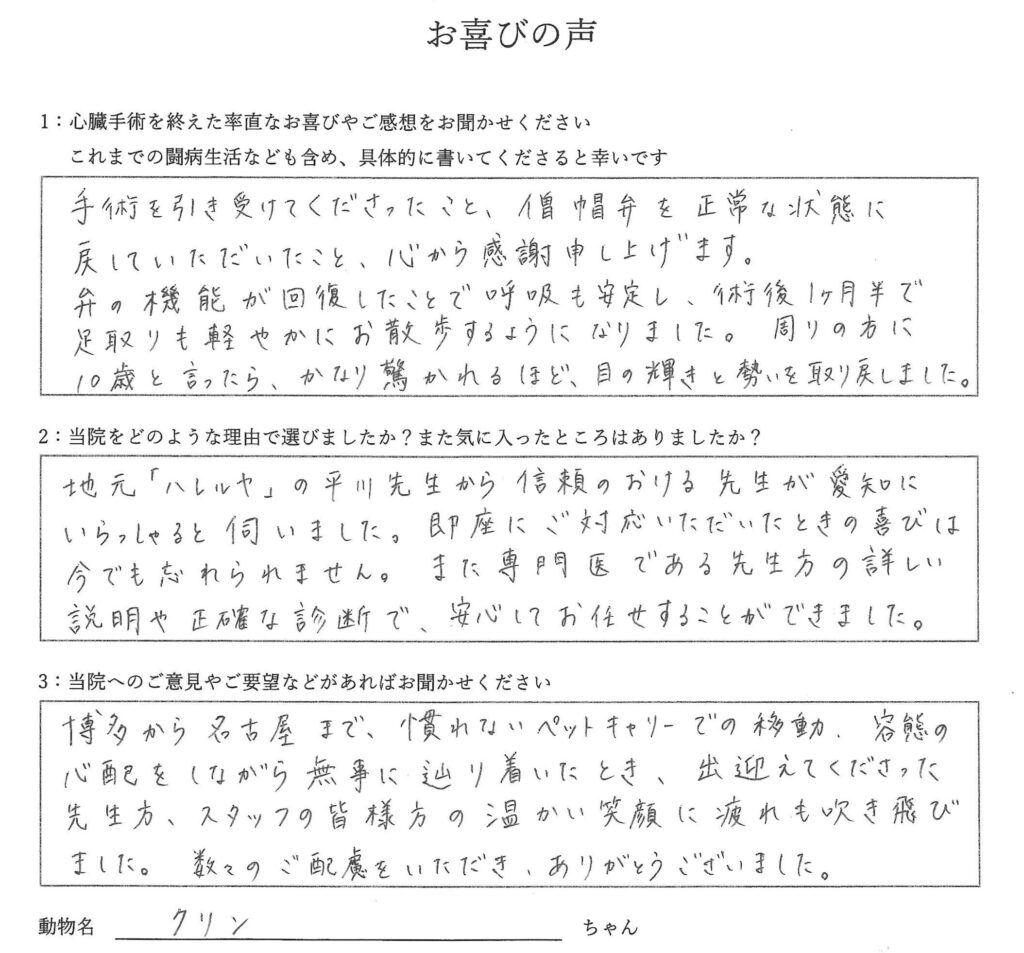 お喜びの声
1：心臓手術を終えた率直なお喜びやご感想をお聞かせください
これまでの闘病生活なども含め、具体的に書いてくださると幸いです
手術を引き受けてくださったこと、僧帽弁を正常な状態に
戻していただいたこと、心から感謝申し上げます。
弁の機能が回復したことで呼吸も安定し、術後1ヶ月半で
足取りも軽やかにお散歩するようになりました。周りの方に
10歳と言ったら、かなり驚かれるほど、目の輝きと勢いを取り戻しました。
2：当院をどのような理由で選びましたか？また気に入ったところはありましたか？
地元「ハレルヤ」の平川先生から信頼のおける先生が愛知に
いらっしゃると伺いました。即座にご対応いただいたときの喜びは
今でも忘れられません。また専門医である先生方の詳しい
説明や正確な診断で、安心してお任せすることができました。
3：当院へのご意見やご要望などがあればお聞かせください
博多から名古屋まで、慣れないペットキャリーでの移動、容態の
心配をしながら無事に辿り着いたとき、出迎えてくださった
先生方、スタッフの皆様方の温かい笑顔に疲れも吹き飛び
ました。数々のご配慮をいただき、ありがとうございました。
動物名 クリン ちゃん